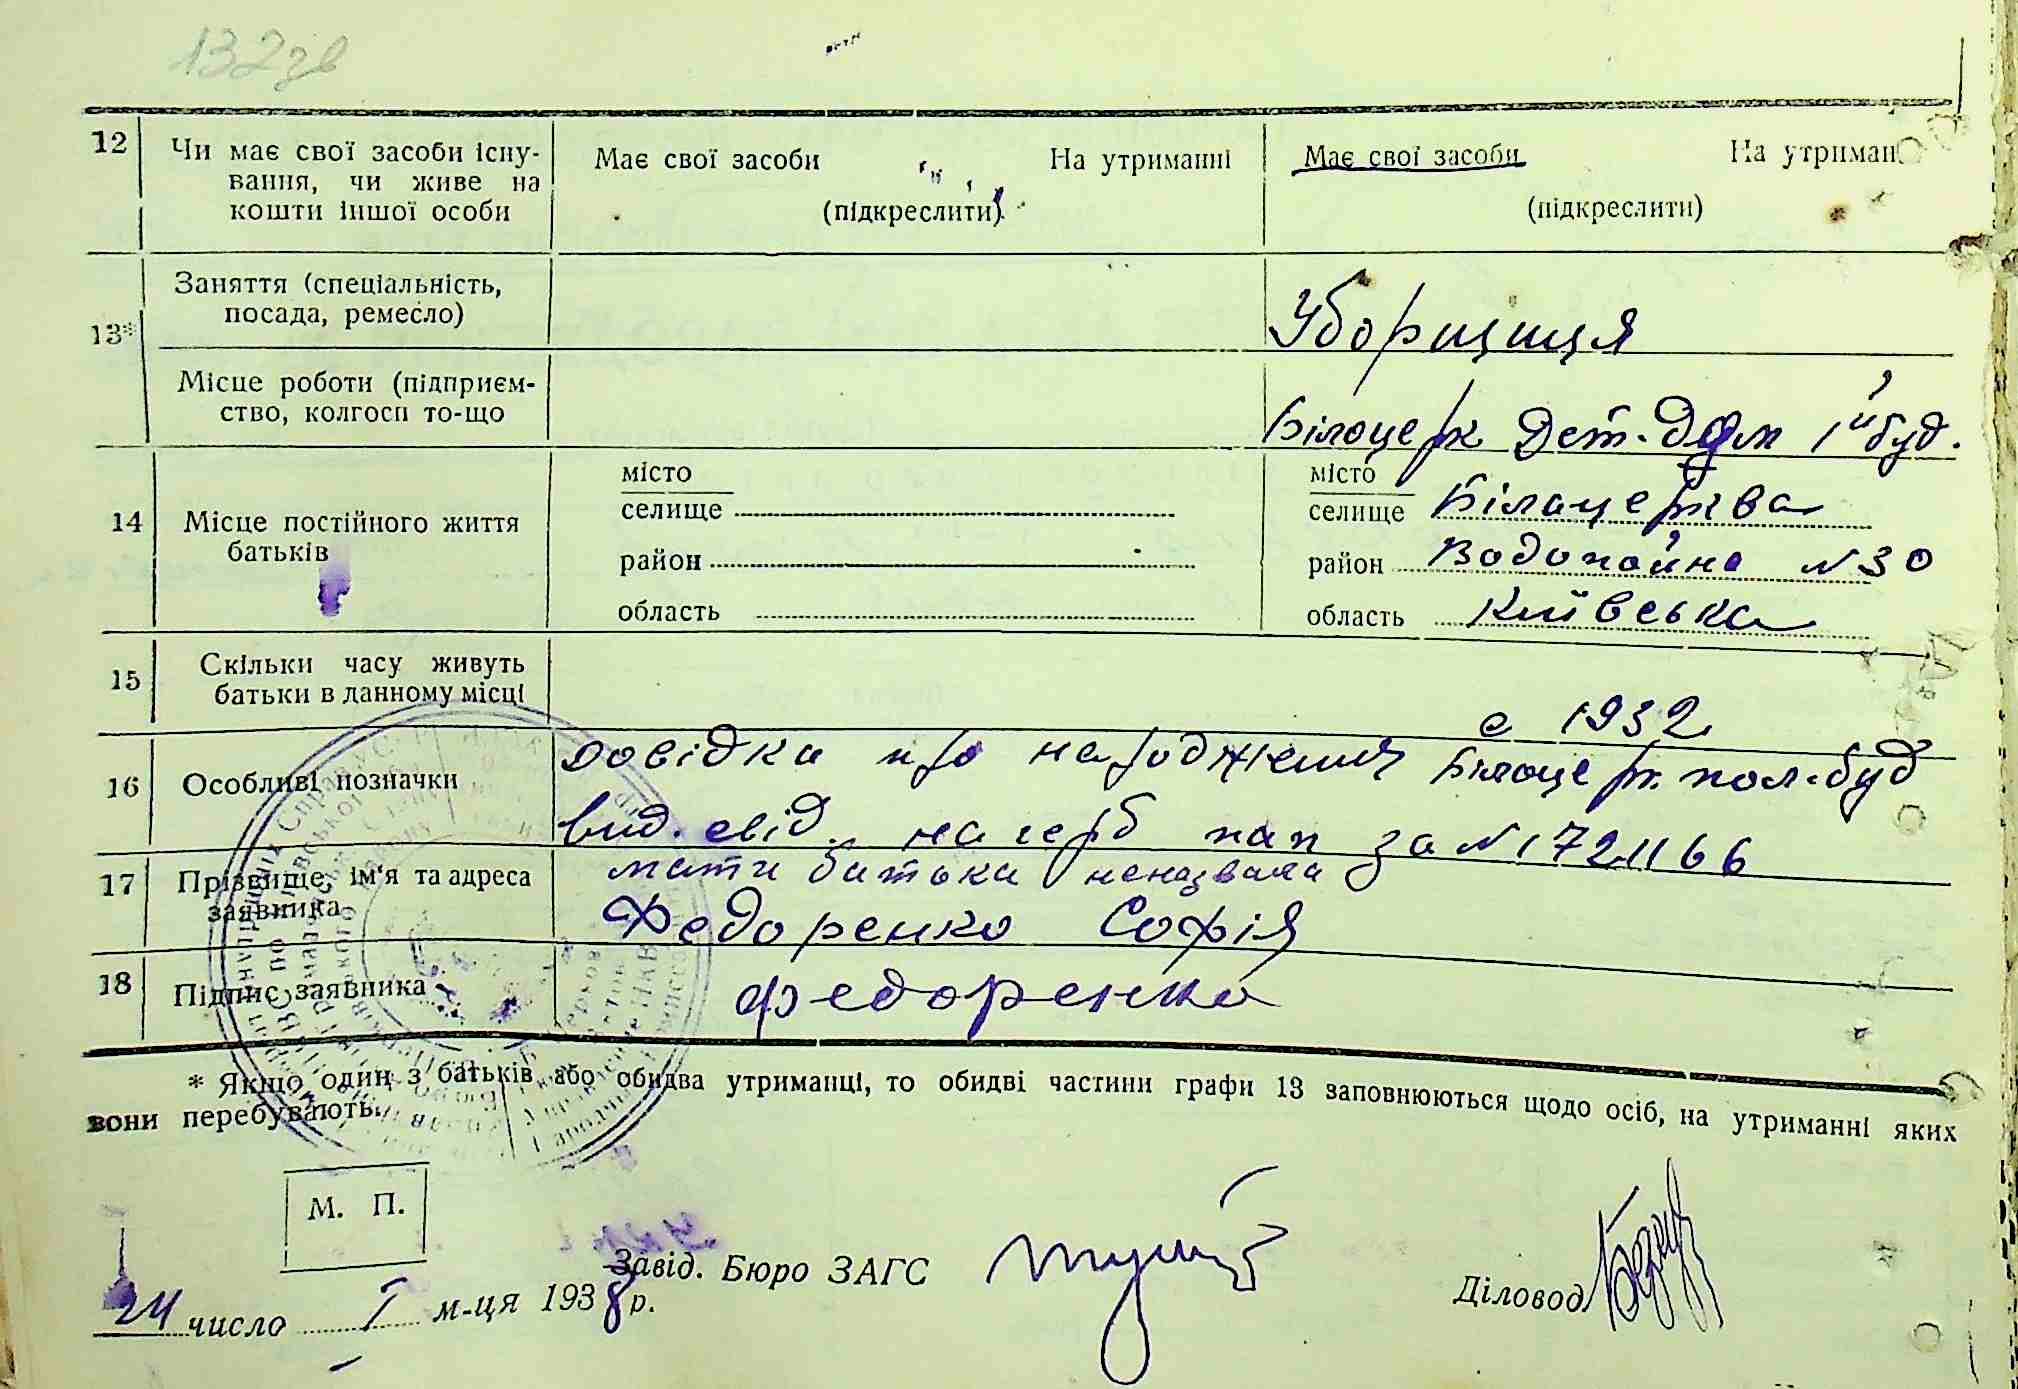 132зв
12 Чи має свої засоби існу-
вання, чи живе на
кошти іншої особи
Має свої засоби На утриманні
(підкреслити)
Має свої засоби На утриман
(підкреслити)
13* Заняття (спеціальність,
посада, ремесло)
Уборщиця
Місце роботи (підприєм-
ство, колгосп то-що
Білоцерк Дет. Дом 1й буд.
14 Місце постійного життя
батьків
місто
селище
район
область
місто
селище Білацерква
район Водопойна N30
область Київська
15 Скільки часу живуть
батьки в данному місці
с 1932
16 Особливі позначки
довідка про народження Білоцерк. пол. буд
вид. свід. на герб пап за N 1721166
17 Прізвище, ім'я та адреса
заявника
мати батька неназвала
Федоренко Софія
18 Підпис заявника
Федоренко
* Якщо один з батьків або обидва утриманці, то обидві частини графи 13 заповнюються щодо осіб, на утриманні яких
вони перебувають.
М. П.
24 число I м-ця 1938 р.
Завід. Бюро ЗАГС
Діловод